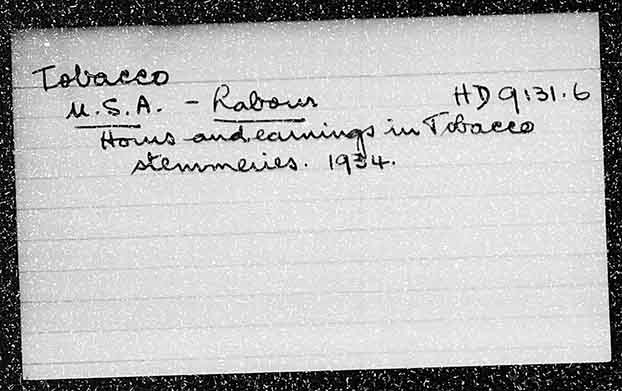 Tobacco
U.S.A. - Labour HD 9:31.6
Hours and earnings in Tobacco
stemmeries. 1934.